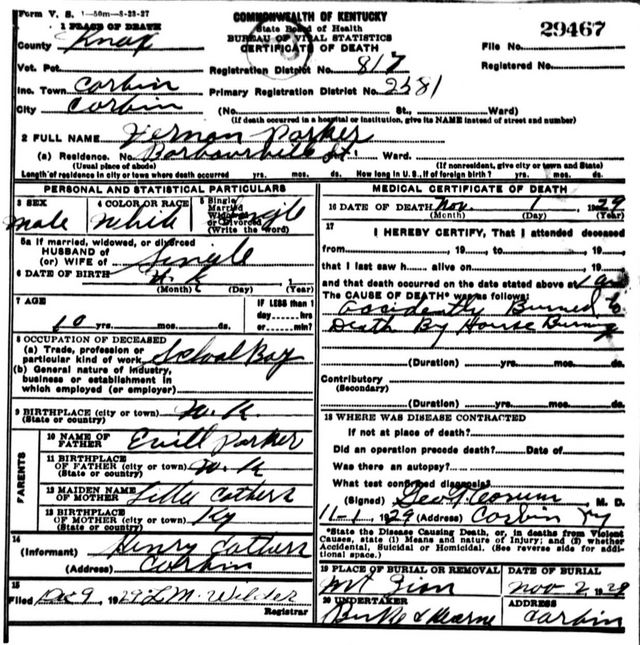 Form V. S. 1-50m-8-28-27
COMMONWEALTH OF KENTUCKY
State Board of Health
BUREAU OF VITAL STATISTICS
CERTIFICATE OF DEATH
29467
1 PLACE OF DEATH
County Knox
File No.
Vot. Pct.
Registration District No. 817
Registered No.
Inc. Town Corbin
Primary Registration District No. 2381
City Corbin (No. St., Ward)
(If death occurred in a hospital or institution, give its NAME instead of street and number)
2 FULL NAME Vernon Parker
(a) Residence. No. Barbourville St. Ward.
(Usual place of abode) (If nonresident, give city or town and State)
Length of residence in city or town where death occurred yrs. mos. ds. How long in U. S., if of foreign birth? yrs. mos. ds.
PERSONAL AND STATISTICAL PARTICULARS
3 SEX male
4 COLOR OR RACE White
5 Single Married Widowed or Divorced (Write the word) Single
5a If married, widowed, or divorced
HUSBAND of
(or) WIFE of Single
6 DATE OF BIRTH
(Month) (Day) (Year)
7 AGE
10 yrs. mos. ds.
IF LESS than 1 day hrs. or min?
8 OCCUPATION OF DECEASED
(a) Trade, profession or particular kind of work School Boy
(b) General nature of industry, business or establishment in which employed (or employer)
9 BIRTHPLACE (city or town) W. K.
(State or country)
PARENTS
10 NAME OF FATHER Parker
11 BIRTHPLACE OF FATHER (city or town) W. K
(State or country)
12 MAIDEN NAME OF MOTHER
13 BIRTHPLACE OF MOTHER (city or town) Ky
(State or country)
14
(Informant) Henry
(Address) Corbin
15
Filed Dec 9 1929 L M. Wilder
Registrar
MEDICAL CERTIFICATE OF DEATH
16 DATE OF DEATH Nov. 1 1929
(Month) (Day) (Year)
17
I HEREBY CERTIFY, That I attended deceased
from , 19 , to , 19
that I last saw h alive on , 19
and that death occurred on the date stated above at
The CAUSE OF DEATH* was as follows:
Accidently Burned to
Death By House Burning
(Duration) yrs. mos. ds.
Contributory
(Secondary)
(Duration) yrs. mos. ds.
18 WHERE WAS DISEASE CONTRACTED
If not at place of death?
Did an operation precede death? Date of
Was there an autopsy?
What test confirmed diagnosis?
(Signed) M. D.
11-1, 1929 (Address) Corbin Ky
*State the Disease Causing Death, or, in deaths from Violent
Causes, state (1) Means and nature of Injury; and (2) whether
Accidental, Suicidal or Homicidal. (See reverse side for addi-
tional space.)
19 PLACE OF BURIAL OR REMOVAL
Mt Zion
DATE OF BURIAL
Nov 2 1929
20 UNDERTAKER
ADDRESS
Corbin